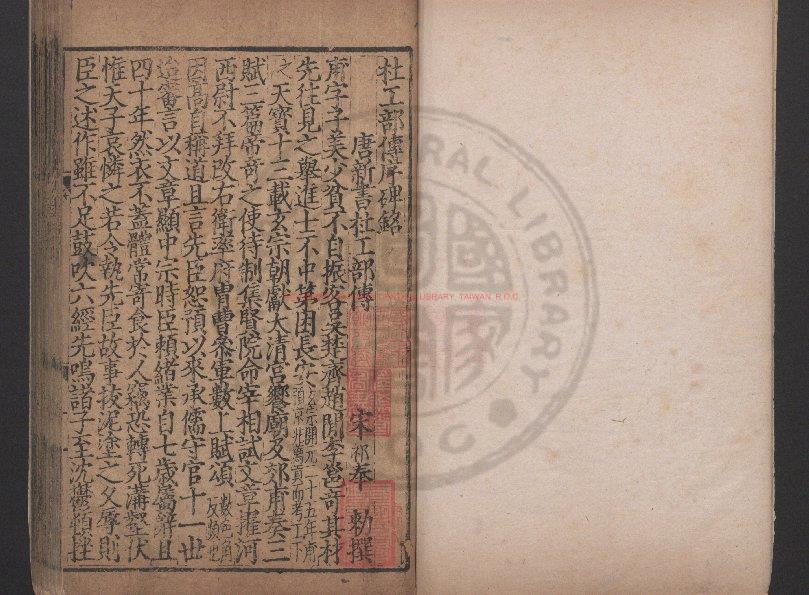 杜工部傳序碑銘
唐新書杜工部傳 宋祁奉 勅撰
甫字子美少貧不自振客吳楚齊趙間李邕奇其材
先往見之舉進士不中第困長安
之天寶十三載玄宗朝獻大清宮饗廟及郊甫奏三
賦三篇帝奇之使待制集賢院命宰相試文章擢河
西尉不拜改右衛率府胄曹參軍數上賦頌
因高自稱道且言先臣恕預以來承儒守官十一世
迨審言以文章顯中宗時臣賴緒業自七歲屬辭且
四十年然衣不蓋體常寄食於人竊恐轉死溝壑伏
惟天子哀憐之若令執先臣故事拔泥塗之久辱則
臣之述作雖不足鼓吹六經先鳴諸子至沈鬱頓挫
CENTRAL LIBRARY
LIBRARY, TAIWAN, R.O.C.